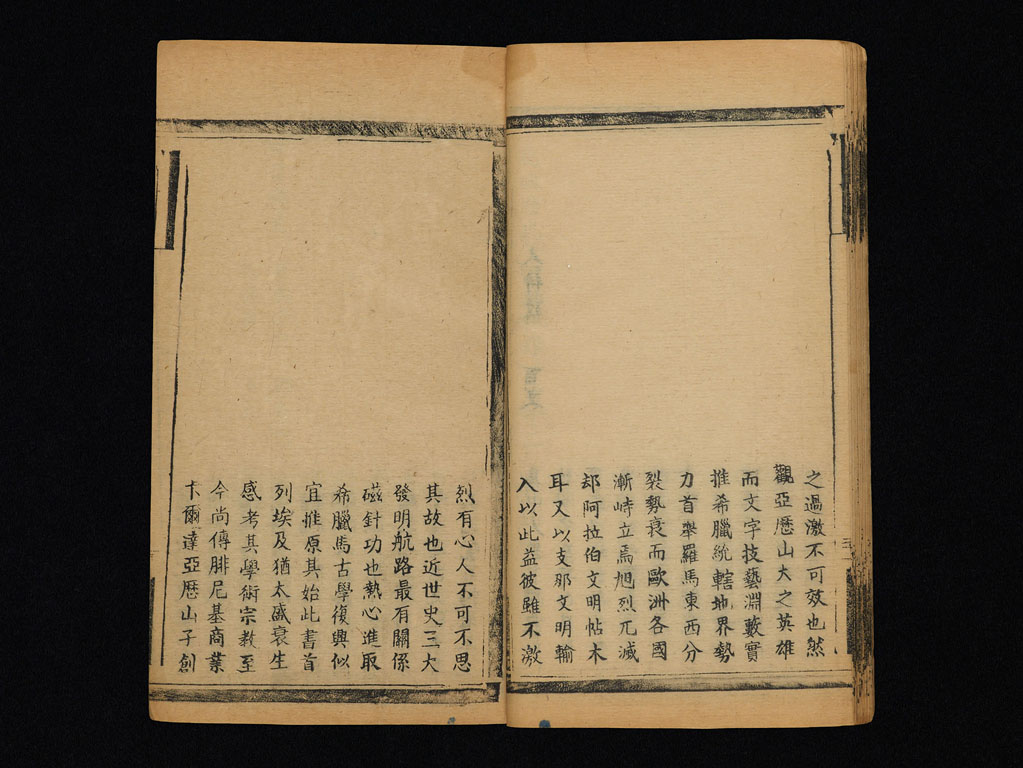 之過激不可效也然
觀亞厯山大之英雄
而文字技藝淵藪實
推希臘統轄地界勢
力首舉羅馬東西分
裂勢衰而歐洲各國
漸峙立焉旭烈兀滅
却阿拉伯文明帖木
耳又以支那文明輸
入以此益彼雖不激
烈有心人不可不思
其故也近世史三大
發明航路最有關係
磁針功也熱心進取
希臘馬古學復興似
宜推原其始此書首
列埃及猶太盛衰生
感考其學術宗教至
今尚傳腓尼基商業
卞爾達亞厯山子創